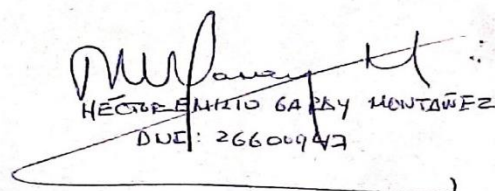 HÉCTOR EMILIO GARAY MONTAÑEZ
DNI: 26600947